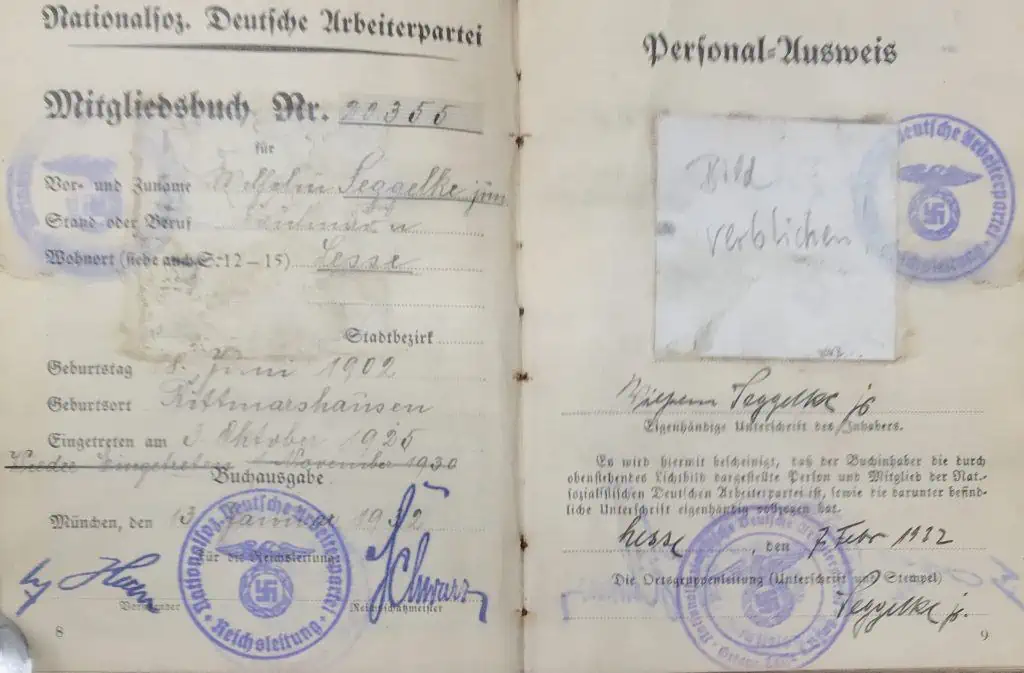 Nationalsoz. Deutsche Arbeiterpartei
Mitgliedsbuch Nr. 20355
für
Vor- und Zuname Wilhelm Seggelke jun
Stand oder Beruf
Wohnort (siehe auch S. 12–15) Lesse
Stadtbezirk
Geburtstag 8. Juni 1902
Geburtsort Rittmarshausen
Eingetreten am 3 Oktober 1925
Wieder Eingetreten 1 November 1930
Buchausgabe
München, den 13 Januar 1932
Für die Reichsleitung:
Schwarz
Vorsitzender Reichsschatzmeister
Nationalsoz. Deutsche Arbeiterpartei
Reichsleitung
8
Personal-Ausweis
Bild
verblichen
Deutsche Arbeiterpartei
Reichsleitung
Wilhelm Seggelke jr
Eigenhändige Unterschrift des Inhabers.
Es wird hiermit bescheinigt, daß der Buchinhaber die durch
obenstehendes Lichtbild dargestellte Person und Mitglied der Nat.-
sozialistischen Deutschen Arbeiterpartei ist, sowie die darunter befind-
liche Unterschrift eigenhändig vollzogen hat.
Lesse, den 7. Febr 1932
Die Ortsgruppenleitung (Unterschrift und Stempel)
Seggelke jr.
9